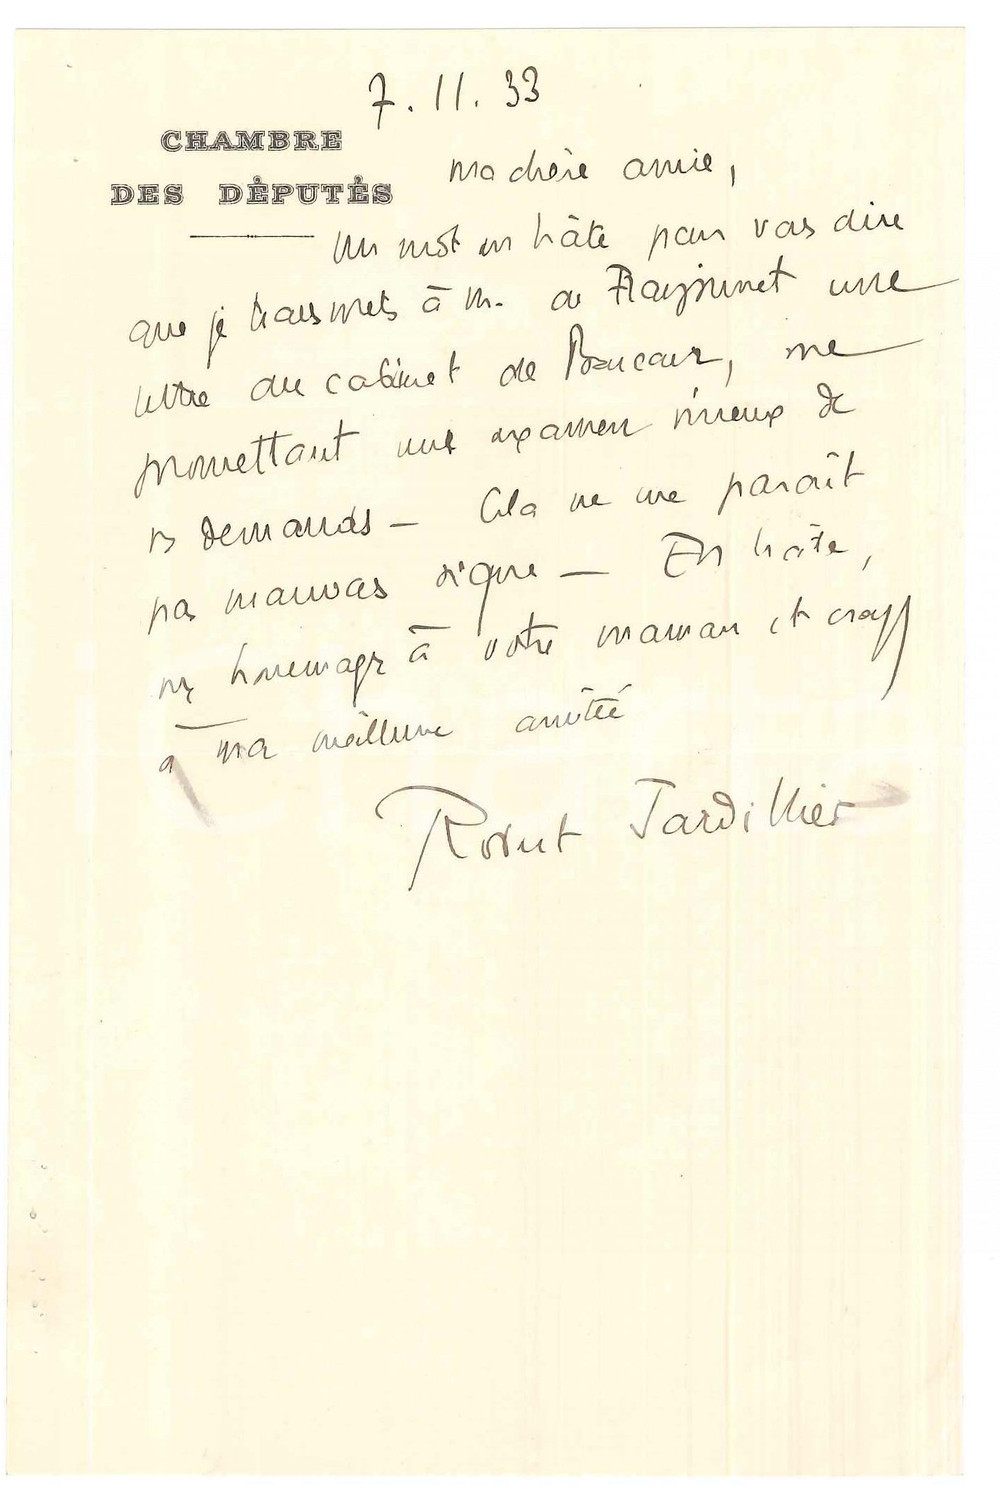 7.11.33
CHAMBRE
DES DÉPUTÉS
Ma chère amie,
Un mot en hâte pour vous dire
que je transmets à M. de une
lettre du cabinet de , me
promettant une examen sérieux de
ses demandes — Cela ne me paraît
pas mauvais signe — En hâte,
mes hommages à votre maman et croyez
à ma meilleure amitié
Robert Jardillier